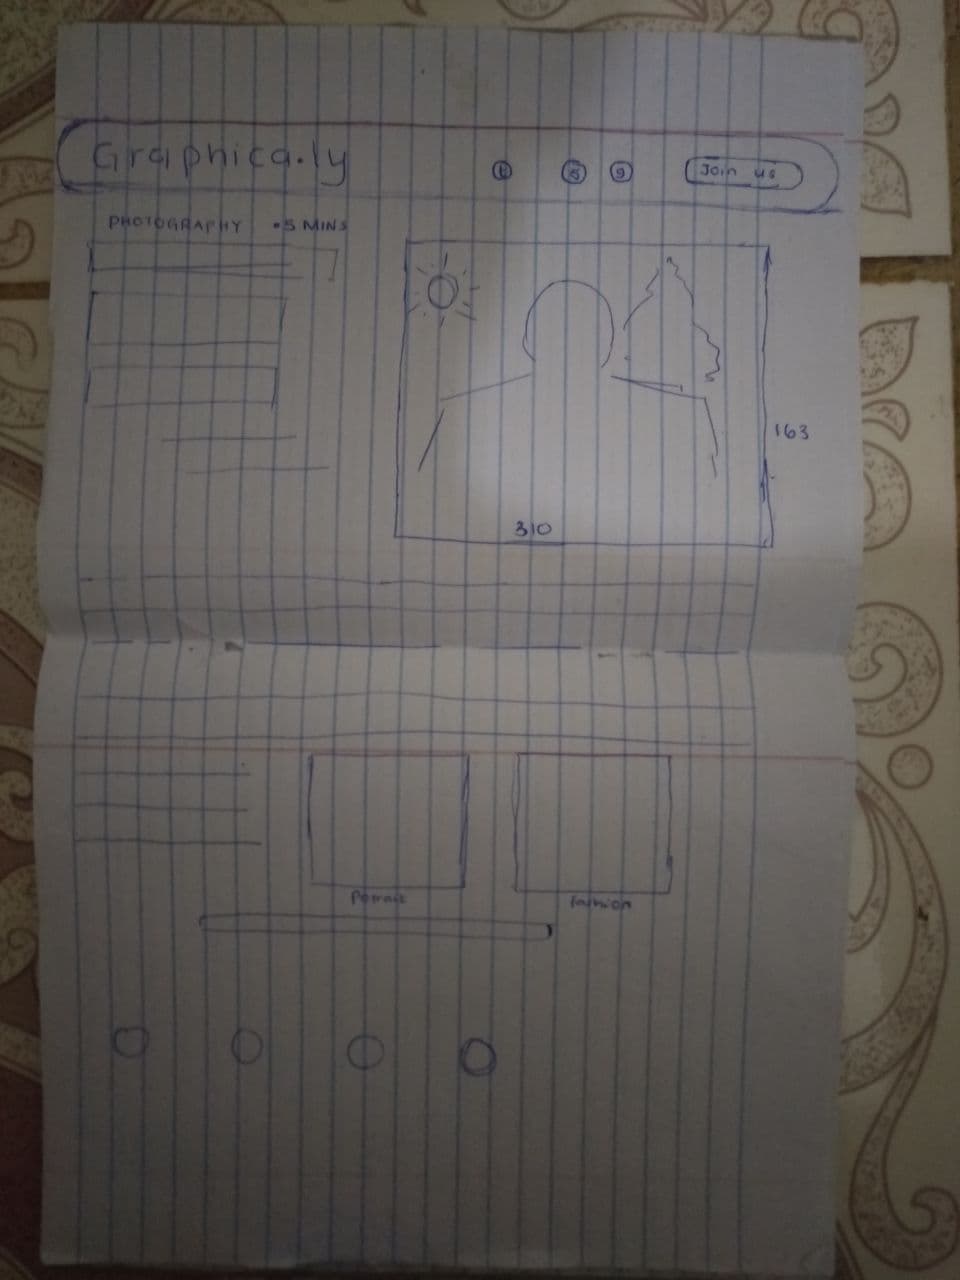 Graphica.ly
Join us
PHOTOGRAPHY • 5 MINS
163
310
fashion